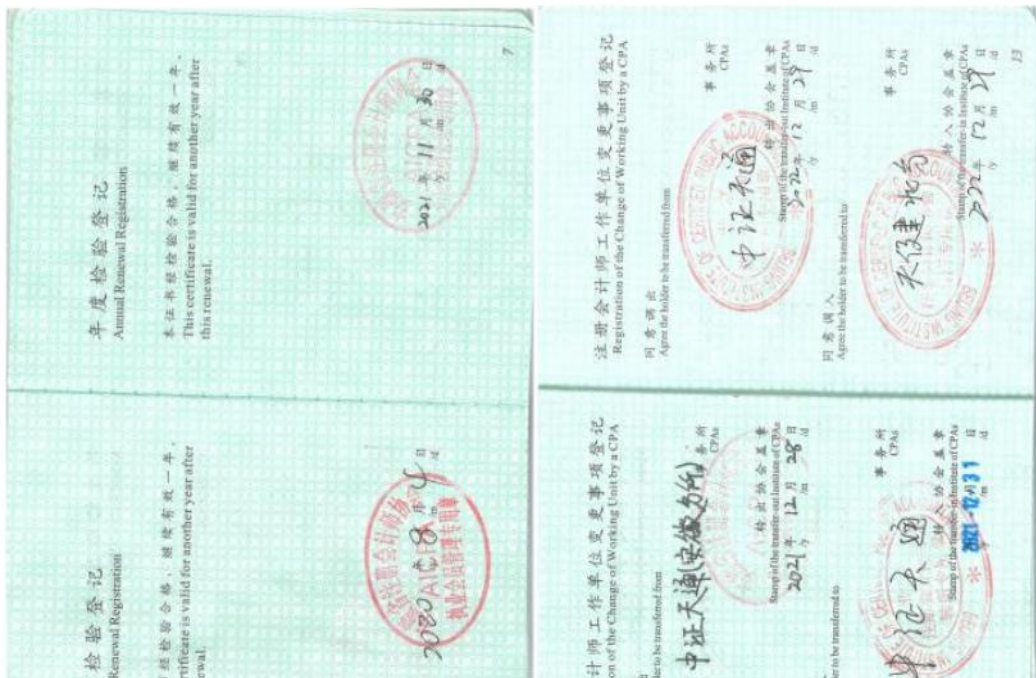 年度检验登记
Annual Renewal Registration
本证书经检验合格，继续有效一年。
This certificate is valid for another year after
this renewal.
2021年11月30日
/y /m /d
7
检验登记
Renewal Registration
经检验合格，继续有效一年。
rtificate is valid for another year after
ewal.
2020年8月4日
/m /d
执业会员管理专用章
注册会计师工作单位变更事项登记
Registration of the Change of Working Unit by a CPA
同意调出
Agree the holder to be transferred from
中证天通
事务所
CPAs
转出协会盖章
Stamp of the transfer-out Institute of CPAs
2022年12月29日
/y /m /d
同意调入
Agree the holder to be transferred to
事务所
CPAs
转入协会盖章
Stamp of the transfer-in Institute of CPAs
2022年12月29日
/y /m /d
13
计师工作单位变更事项登记
on of the Change of Working Unit by a CPA
lder to be transferred from
中证天通(安徽分所)
务所
CPAs
转出协会盖章
Stamp of the transfer-out Institute of CPAs
2021年12月28日
/y /m /d
der to be transferred to
中证天通
事务所
CPAs
转入协会盖章
Stamp of the transfer-in Institute of CPAs
2021 12月31
/m /d